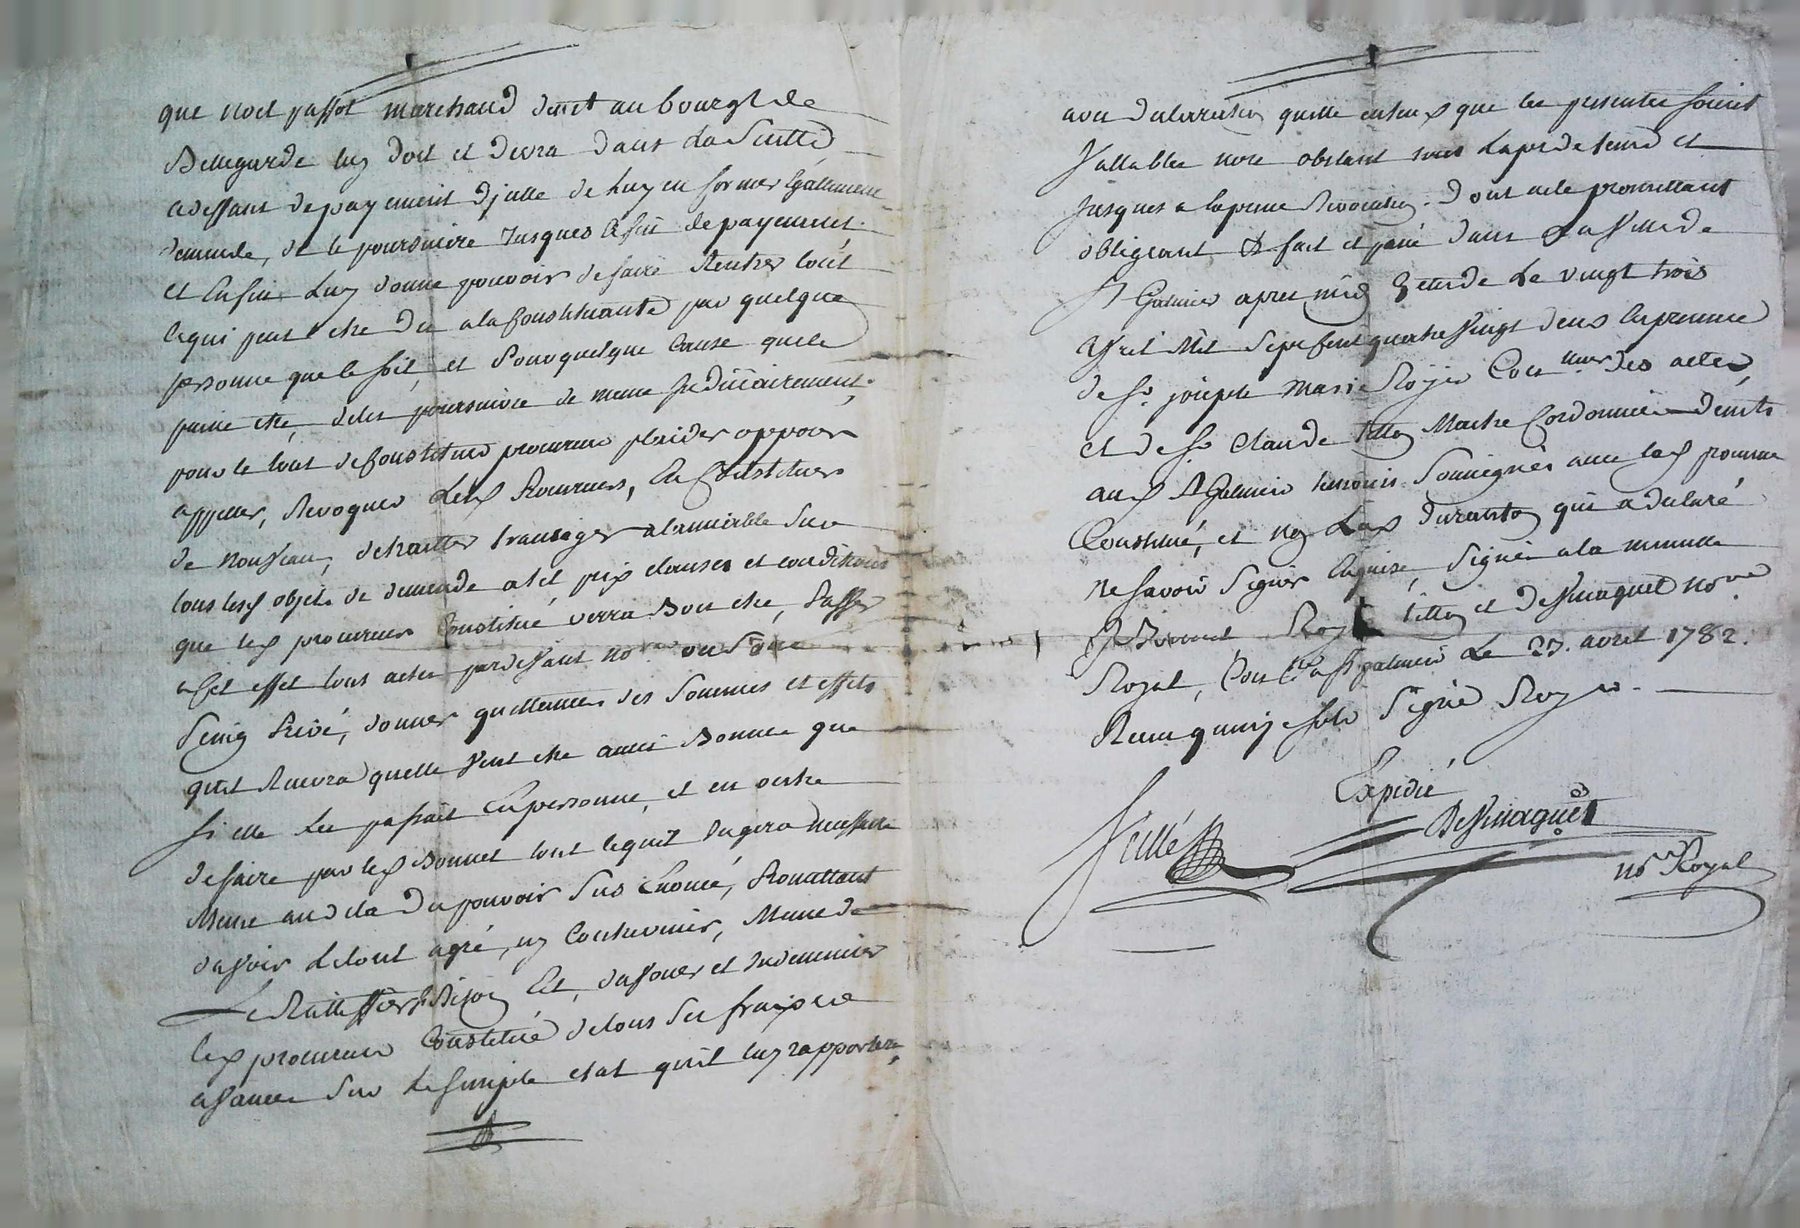 que noel passot marchand demt au bourgt de
Bellegarde luy doit et devra dans La Suitte
adeffaut de payement djcelle de Luy en former Egallement
demande, et le poursuivre Jusques a fin de payement.
Et Enfin Luy donne pouvoir de faire Rentrer tout
cequi peut etre Du a la Constituante par quelque
personne que ce soit, et Pour quelque Cause que ce
puisse etre, de les poursuivre de meme Judiciairement.
pour le tout de Constituer procureur plaider opposer
appeller, Revoquer Lesd Procureurs, En Constituer
de nouveau, detraitter transiger alamiable Sur
tous lesd objets de demande a tel prix clauses et conditions
que led procureur Constitué verra Bon etre, Passer
a Cet effet tous actes pardevant nore ou Sous
Seing Privé, donner quittances des Sommes et effets
quil Recevra quelle veut etre aussi Bonnes que
si elle Les passait En personne, et en outre
de faire par led Bonnet tout cequil Jugera necessaire
Meme audela Du pouvoir Sus Enoncé, Promettant
davoir Letout agré, ny Contrevenir, Meme de
Le Ratiffier Si Besoin Est, davouer et Indemniser
led procureur Constitué detous Ses fraix et
avances Sur Le Simple etat quil luy rapportera
avec declaration quelle entend que les presentes soient
Vallables nonobstant surannation et
Jusques a Expresse Revocation. Dont acte promettant
obligeant &c fait et passé dans La Ville de
St Galmier apres midy Etude Le vingt trois
avril Mil Sept Cent quatre Vingt deux En presence
de Sr. joseph Marie Royer Commer des actes
et de Sr Claude Tillon Maitre Cordonnier Demts
aud St Galmier temoins Soussignés avec led procureur
Constitué, et non Lad Duranton qui a declaré
ne Savoir Signer Enquise, Signé a la minutte
Bonnet Royer Tillon et Desvinaquet nore.
Royal, Conllé a St galmier Le 23. avril 1782.
Reçu quinze sols Signé Royer.
Expedié
Desvinaquet
nore Royal